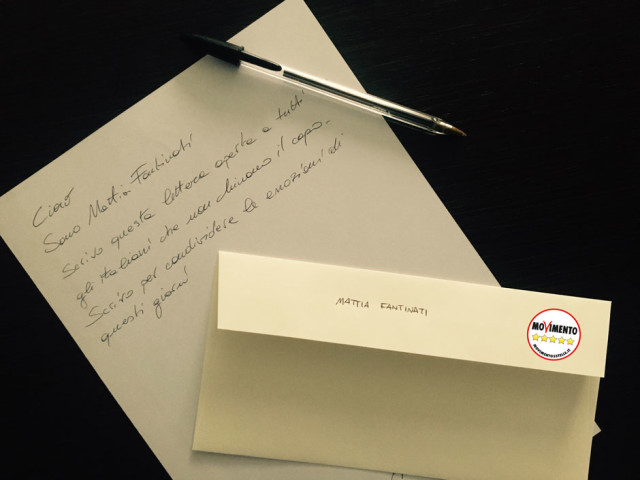 Ciao
Sono Mattia Fantinati
Scrivo questa lettera aperta a tutti
gli italiani che non chinano il capo.
Scrivo per condividere le emozioni di
questi giorni
MATTIA FANTINATI
MOVIMENTO
MOVIMENTO5STELLE.IT